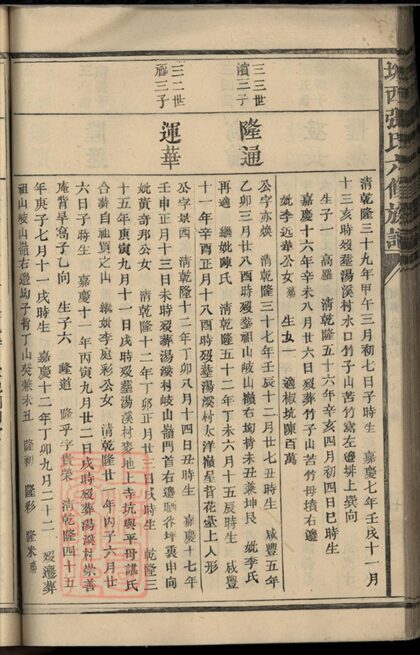 西張氏六修族譜
三三世
濱三子
隆通
三二世
福三子
運華
清乾隆三十九年甲午三月初七日子時生 嘉慶七年壬戌十一月
十三亥時歿塟湯溪村水口竹子山苦竹窩左邊排上巽向
生子一 高羅 清乾隆五十六年辛亥四月初四日巳時生
嘉慶十六年辛未八月廿六日歿葬竹子山苦竹母墳右邊
妣李近華公女 生女一 適板坑陳百萬
公字亦煥 清乾隆三十七年壬辰十二月廿七丑時生 咸豐五年
乙卯三月廿八酉時歿塟祖山岐山嶺右坳持未丑兼坤艮 妣李氏
再適 繼妣陳氏 清乾隆五十二年丁未六月十五辰時生 咸豐
十一年辛酉正月十八酉時歿塟湯溪村太洋嶺星背花臺上人形
公字煥西 清乾隆十二年丁卯八月十四日丑時生 嘉慶十七年
壬申正月十三日未時歿塟湯溪村岐山嶺門首右邊晒谷坪裏申向
妣黃奇邦公女 清乾隆十二年丁卯正月廿三日戌時生 乾隆三
十五年庚寅九月十一日戌時歿塟湯溪村麥地上寺坑與平母謀氏
合塟自祖買之山 繼妣李庭彩公女 清乾隆廿一年丙子六月廿
六日子時生 嘉慶十一年丙寅九月廿二日戌時歿葬湯溪村崇善
庵背旱窩子乙向 生子六 隆道 隆乎字貴榮 清乾隆四十五
年庚子七月十一戌時生 嘉慶十二年丁卯九月二十二 歿遷葬
祖山岐山嶺右邊坳子背丁山癸兼未丑 隆初 隆彩 隆米